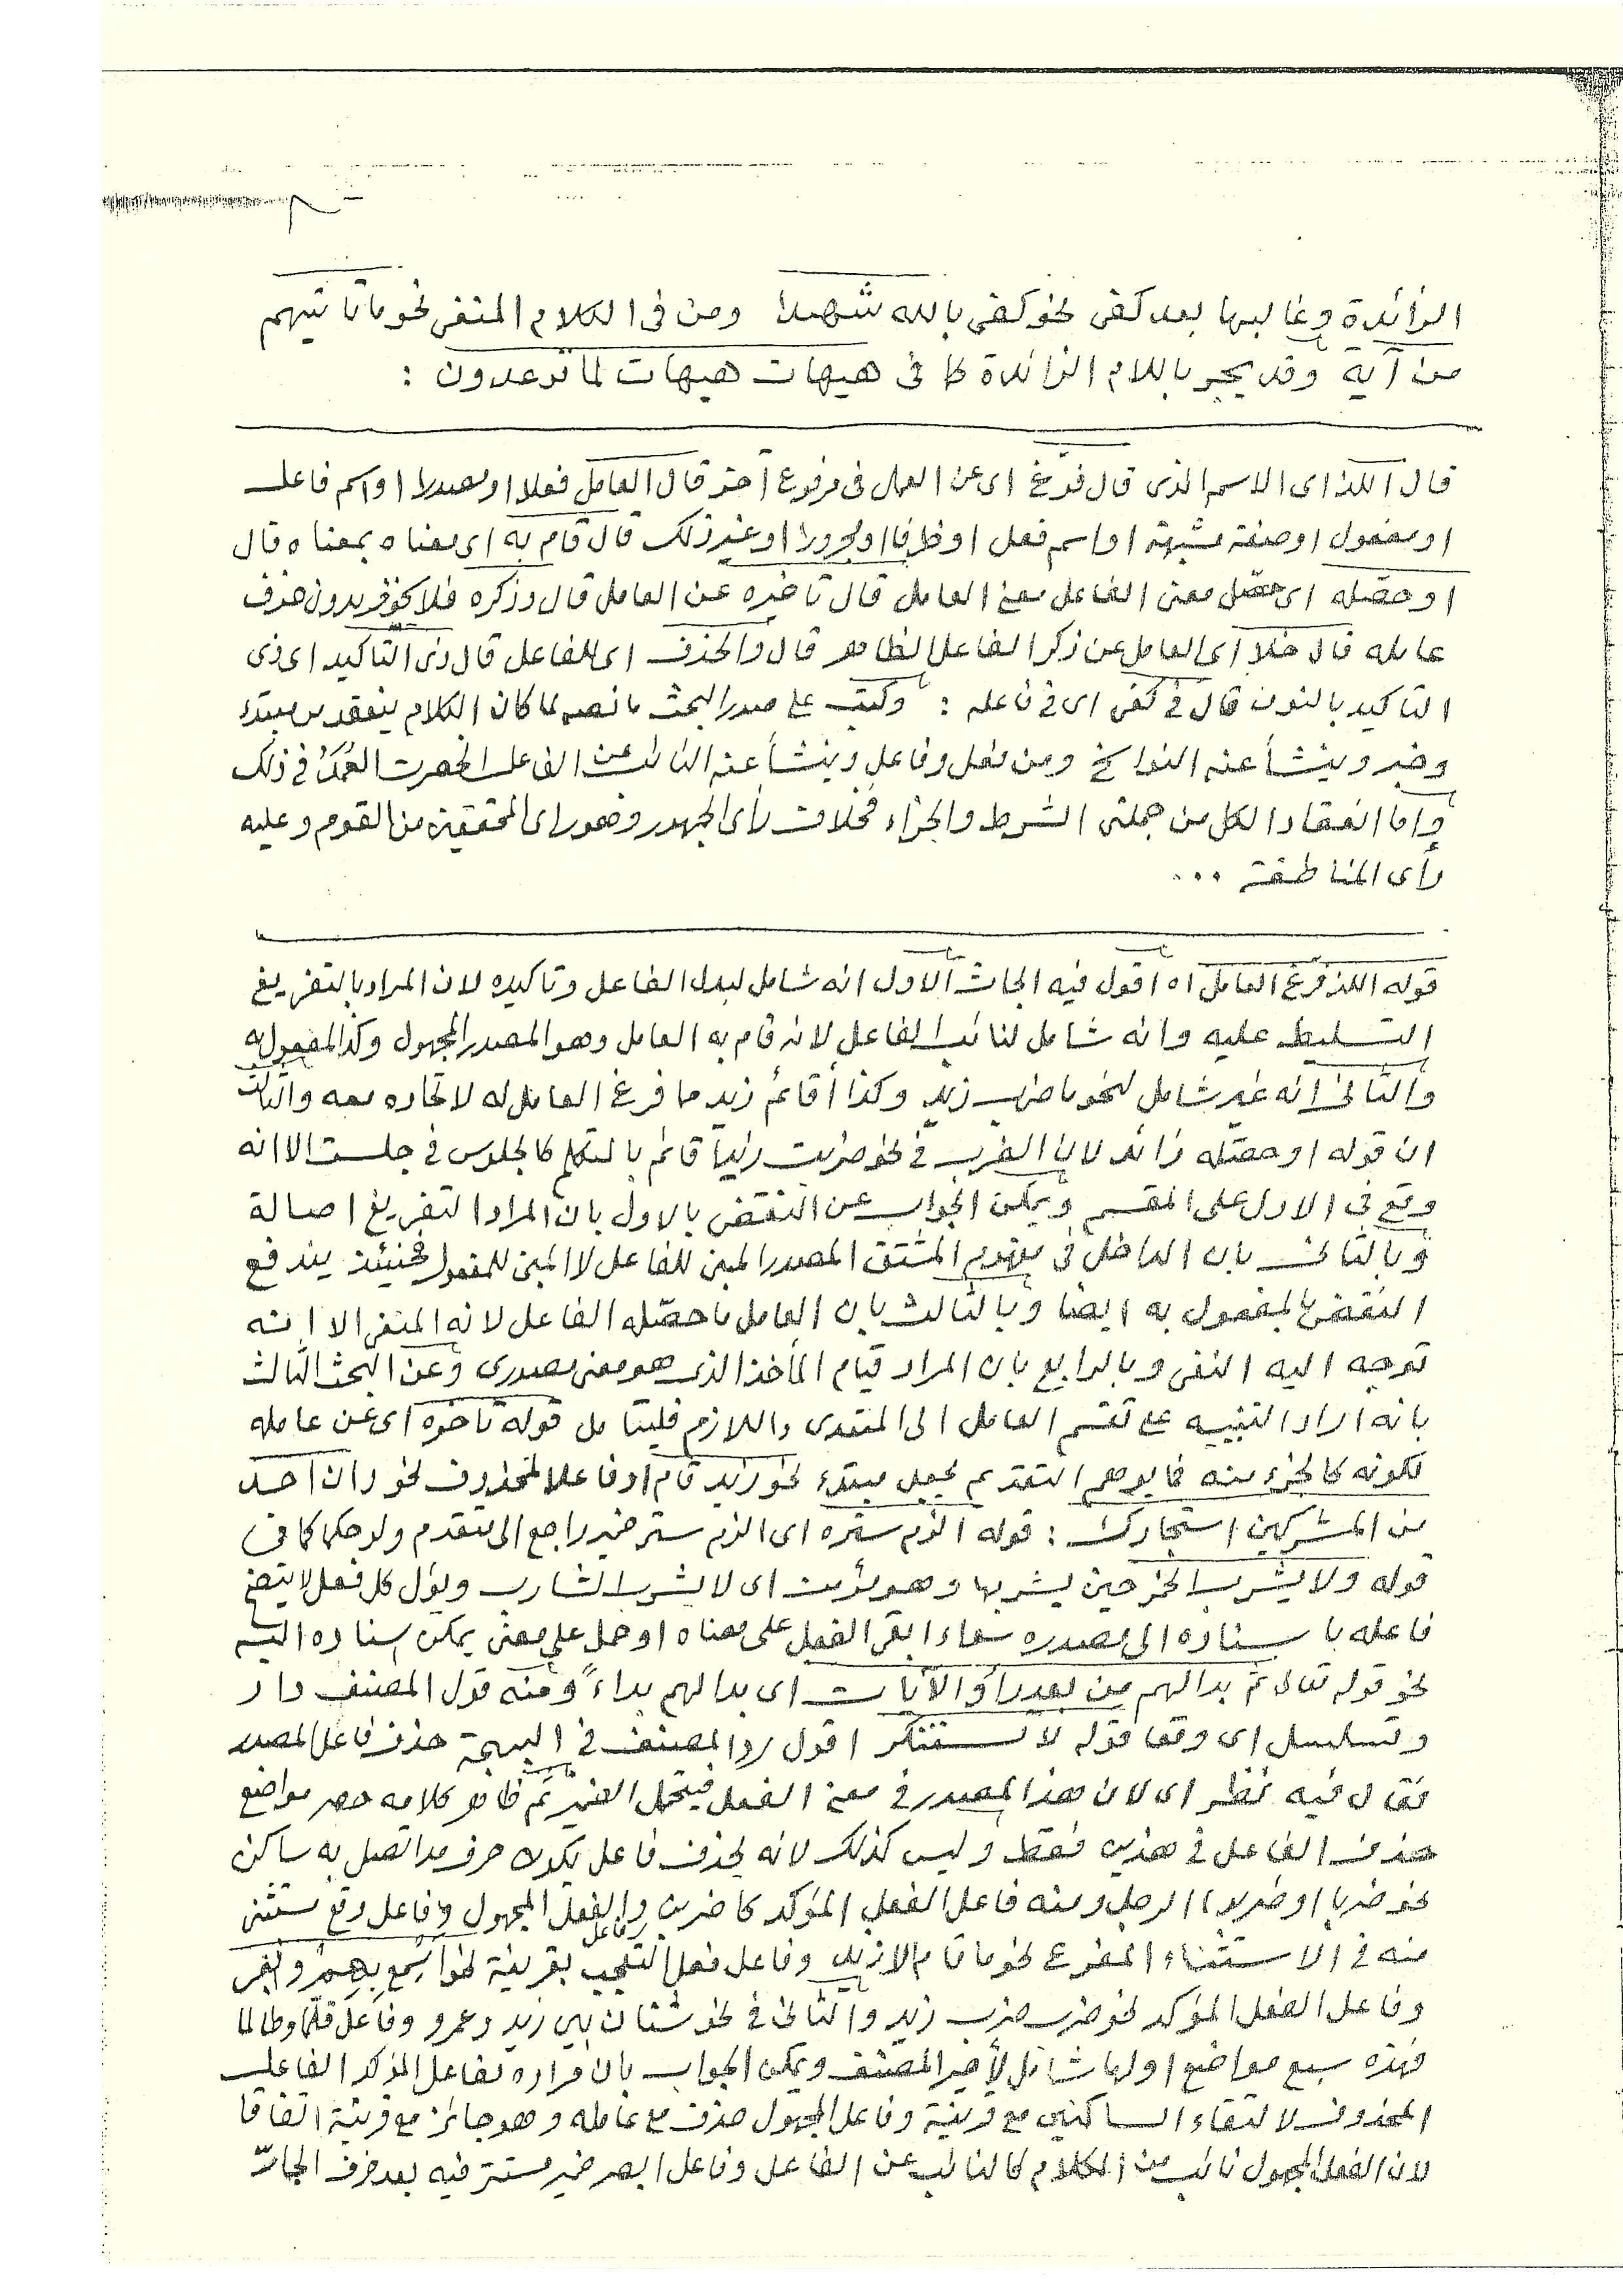 الزائدة وغالبها بعد كفى نحو كفى بالله شهيدا ومن فى الكلام المنفى نحو ما تاتيهم
من آية وقد يجر باللام الزائدة كما فى هيهات هيهات لما توعدون :
قال اللذ اى الاسم الذى قال فرغ اى عن العمل فى مرفوع آخر قال العامل فعلا او مصدرا او اسم فاعل
او مفعول او صفة مشبهة او اسم فعل او ظرفا او مجرورا او غير ذلك قال قام به اى معناه بمعناه قال
او حصّله اى حصّل معنى الفاعل معنى العامل قال تاخيره عن العامل قال وذكره فلا يجوز بدون حذف
عامله قال خلا اى العامل عن ذكر الفاعل الظاهر قال والحذف اى للفاعل قال ذى التاكيد اى ذى
التاكيد بالنون قال فى كفى اى فى فاعله : وكتب على صدر البحث ما نصه لما كان الكلام ينعقد من مبتدء
وخبر وينشأ عنه النواسخ ومن فعل وفاعل وينشأ عنه النائب عن الفاعل انحصرت العُمَدُ فى ذلك
واما انعقاد الكل من جملتى الشرط والجزاء فخلاف رأى الجمهور وهو راى المحققين من القوم وعليه
رأى المناطقة ...
قوله اللذ فرغ العامل اه اقول فيه ابحاث الاول انه شامل لبدل الفاعل وتاكيده لان المراد بالتفريغ
التسليط عليه وانه شامل لنائب الفاعل لانه قام به العامل وهو المصدر المجهول وكذا المفعول به
والثانى انه غير شامل لنحو ما ضرب زيد وكذا أقائم زيد مما فرغ العامل له لاتحاده معه والثالث
ان قوله او حصّله زائد لان الضرب فى نحو ضربت زيدا قائم بالمتكلم كالجلوس فى جلست الا انه
وقع فى الاول على المقسم ويمكن الجواب عن النقض بالاول بان المراد التفريغ اصالة
وبالثانى بان الداخل فى مفهوم المشتق المصدر المبنى للفاعل لا المبنى للمفعول فحينئذ يندفع
النقض بالمفعول به ايضا وبالثالث بان العامل ما حصّله الفاعل لانه المنفى الا انه
توجه اليه النفى وبالرابع بان المراد قيام المأخذ الذى هو معنى مصدرى وعن البحث الثالث
بانه اراد التنبيه على تقسم العامل الى المتعدى واللازم فليتامل قوله تاخره اى عن عامله
لكونه كالجزء منه فما يوهم التقديم يجعل مبتدء نحو زيد قام او فاعلا لمحذوف نحو وان احد
من المشركين استجارك : قوله الزم ستره اى الزم ستر ضمير راجع الى متقدم ولو حكما كما فى
قوله ولا يشرب الخمر حين يشربها وهو مؤمن اى لا يشرب الشارب ويؤل كل فعل لا يتضح
فاعله باسناده الى مصدره سواء ابقى الفعل على معناه او حمل على معنى يمكن اسناده اليه
نحو قوله تعالى ثم بدا لهم من بعد رأو الآيات اى بدا لهم بداءً ومنه قول المصنف دار
وتسلسل اى وقعا قوله لا تستنكر اقول ردا لمصنف فى البهجة حذف فاعل المصدر
فقال فيه نظر اى لان هذا المصدر فى معنى الفعل فيتحمل الضمير ثم ظاهر كلامه حصر مواضع
حذف الفاعل فى هذين فقط وليس كذلك لانه يحذف فاعل يكون حرف مد اتصل به ساكن
نحو ضربا او ضربوا الرجل ومنه فاعل الفعل المؤكد كاضربن والفعل المجهول وفاعل وقع مستثنى
منه فى الاستثناء المفرغ نحو ما قام الا زيد وفاعل فعل التعجب بقرينة نحو اسمع بهم وابصر
وفاعل الفعل المؤكد نحو ضرب ضرب زيد والثانى فى نحو شتان بين زيد وعمرو وفاعل قلّما وطالما
فهذه سبع مواضع اولها شامل لأخير المصنف ويمكن الجواب بان مراده بفاعل المؤكد الفاعل
المحذوف لالتقاء الساكنين مع قرينة وفاعل المجهول حذف مع عامله وهو جائز مع قرينة اتفاقا
لان الفعل المجهول نائب من الكلام كالنائب عن الفاعل وفاعل ابصر ضمير مستتر فيه بعد حرف الجارّ